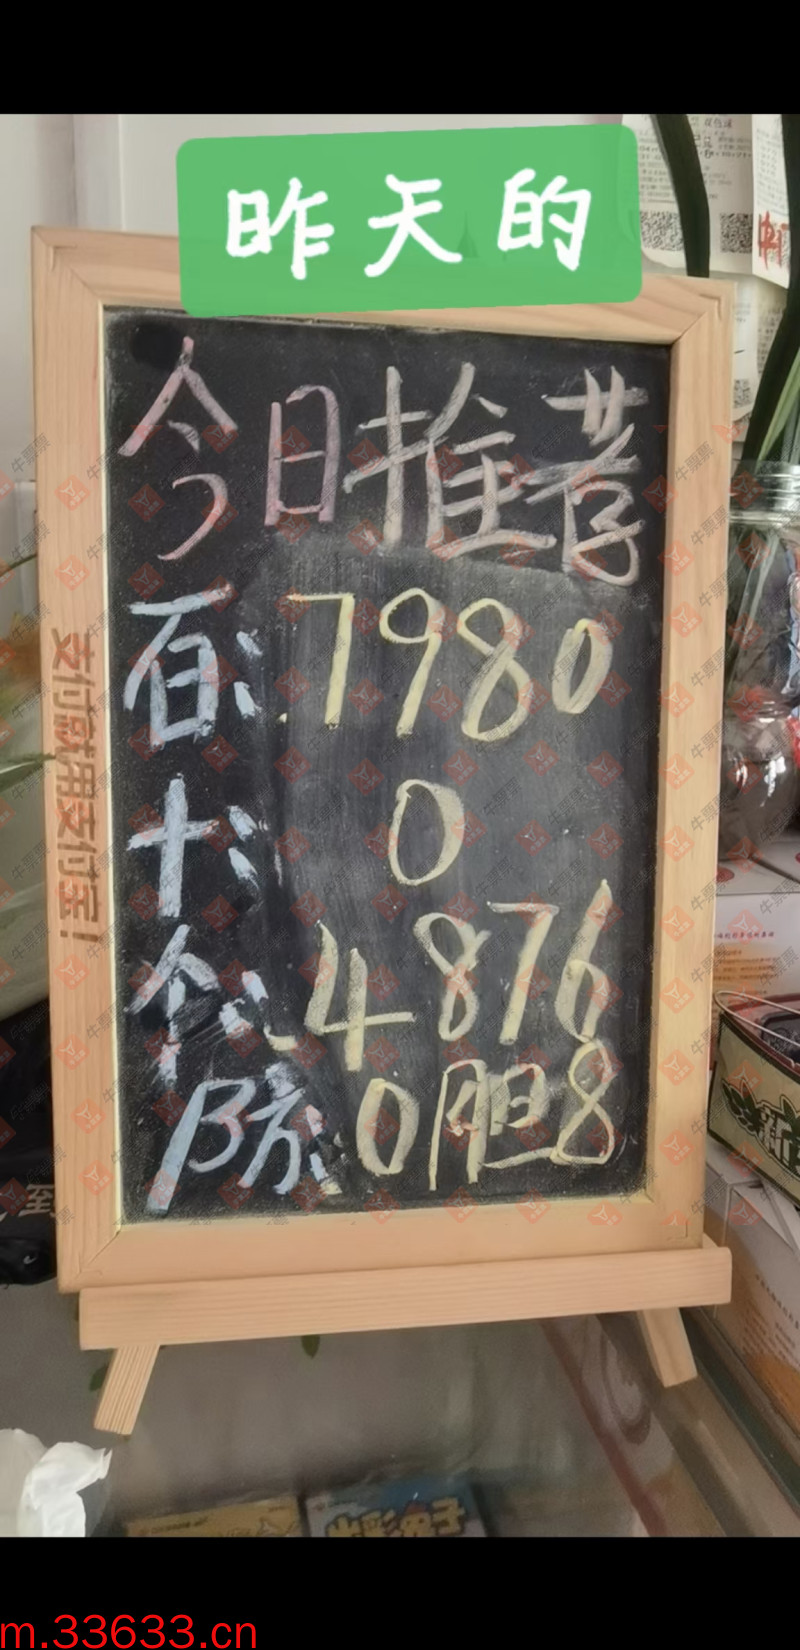 昨天的
今日推荐
百:7980
十:0
个:4876
防:0胆8
支付就用支付宝!
牛票票
m.33633.cn